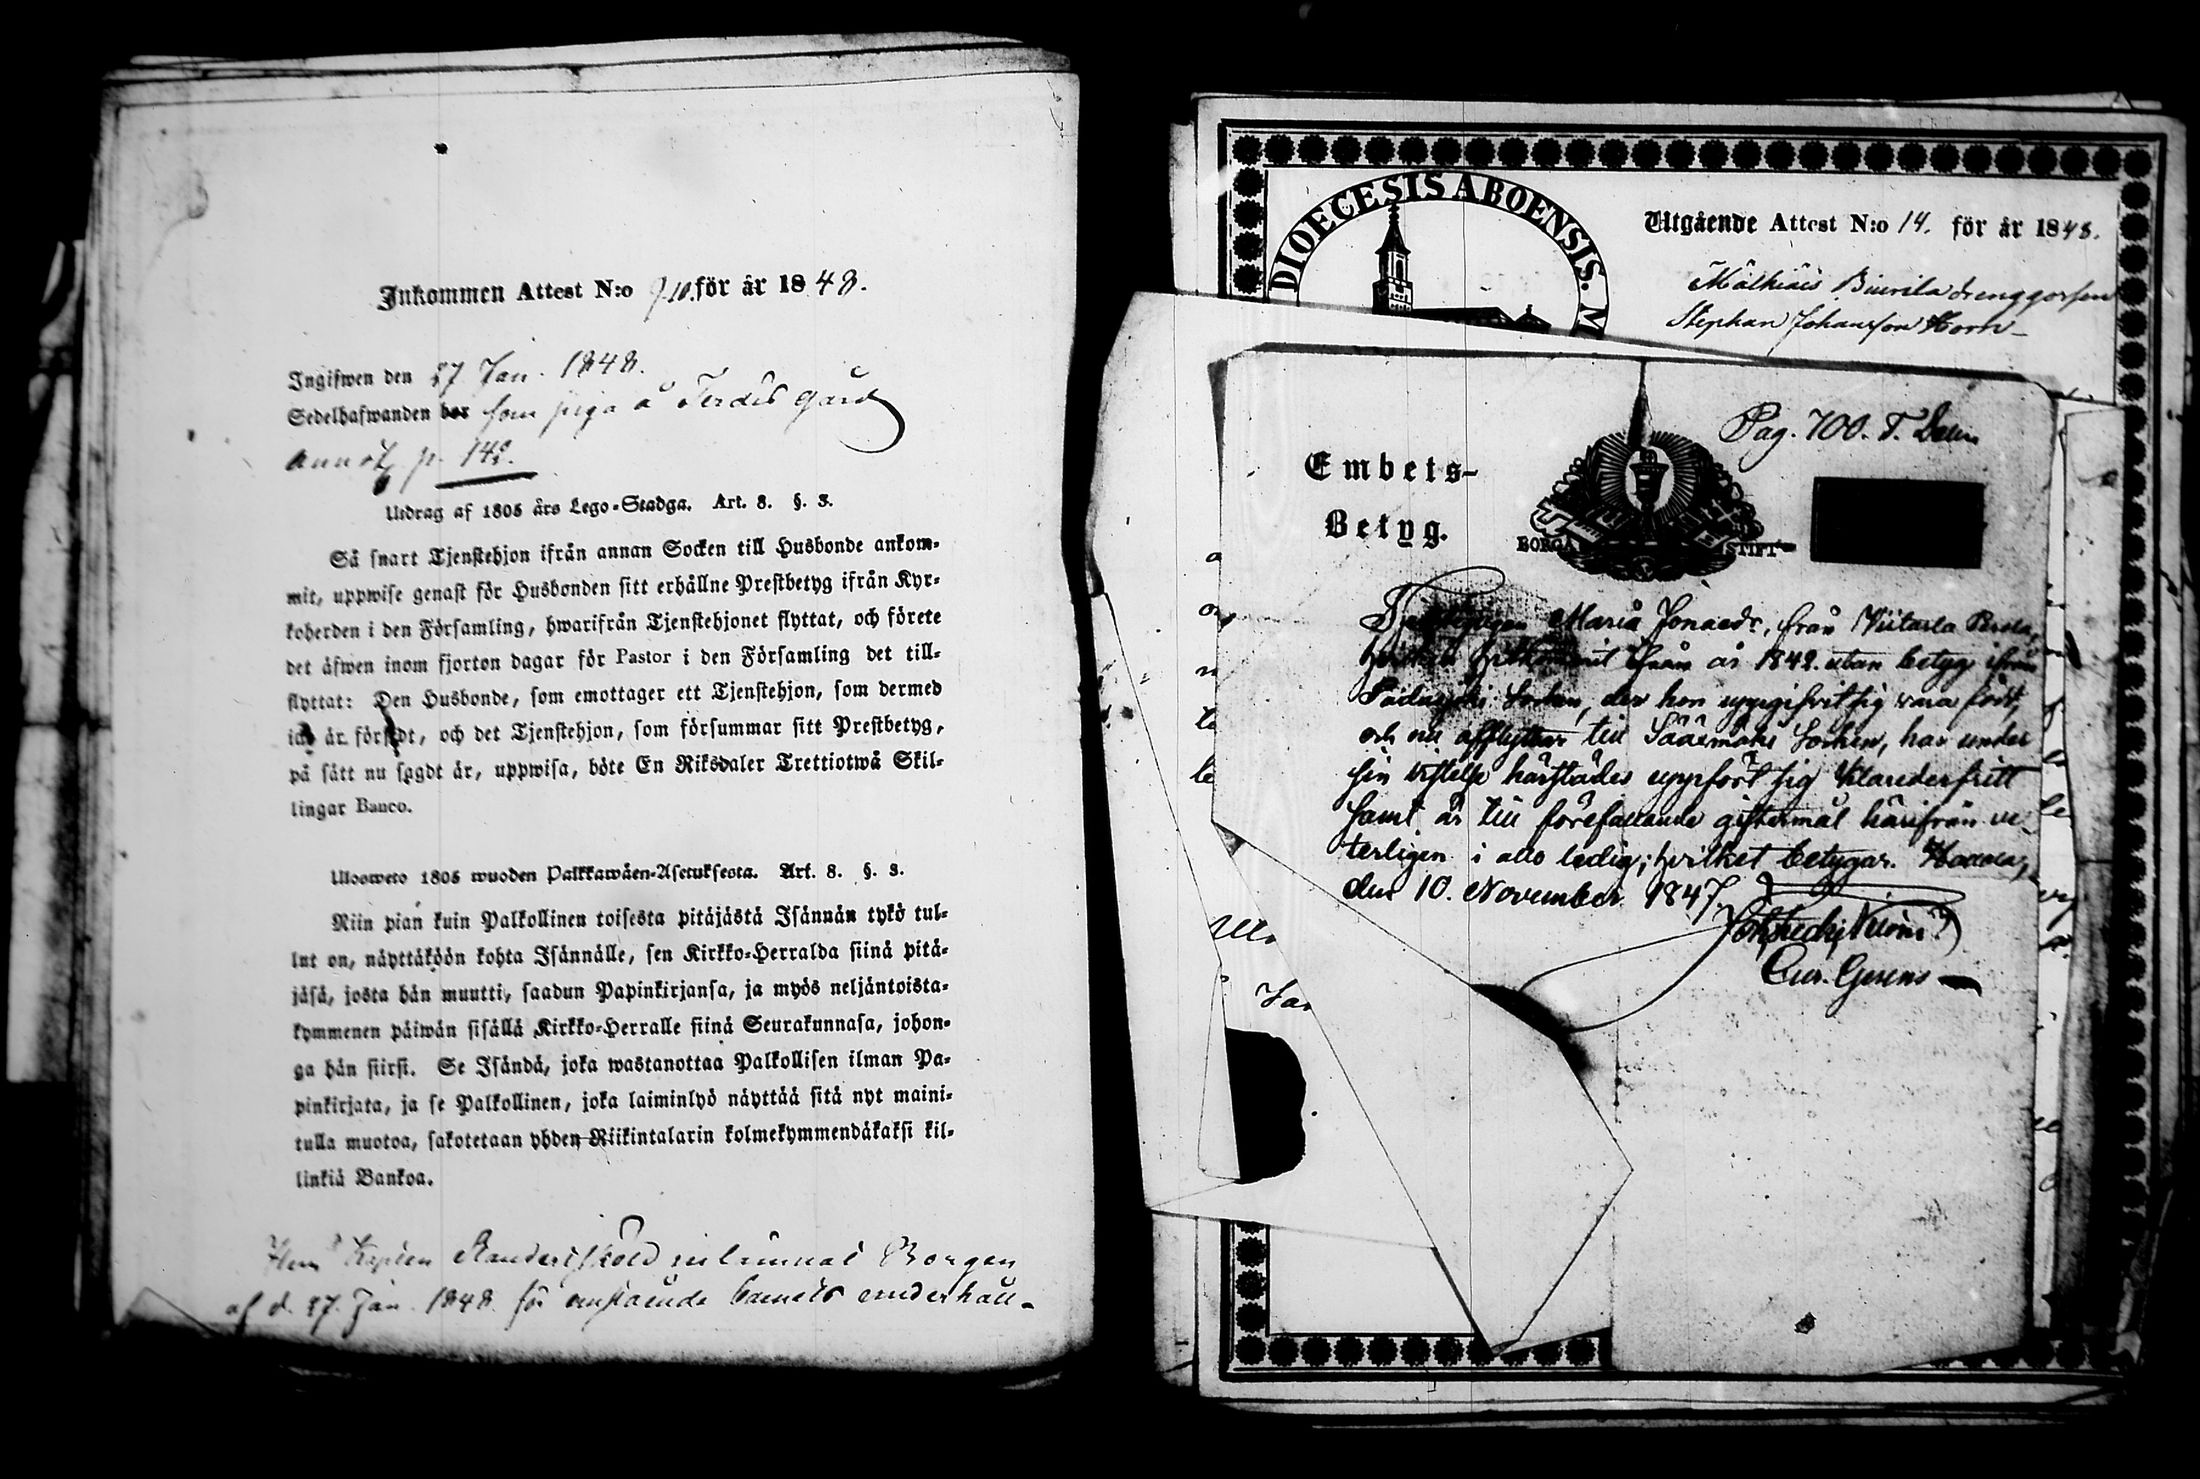 Inkommen Attest N:o 10. för år 1848.
Ingifwen den 27 Jan. 1848.
Sedelhafwanden bor som piga å Gård
annot. p. 142.
Utdrag af 1805 års Lego-Stadga. Art. 8. §. 3.
Så snart Tjenstehjon ifrån annan Socken till Husbonde ankom-
mit, uppwise genast för Husbonden sitt erhållne Prestbetyg ifrån Kyr-
koherden i den Församling, hwarifrån Tjenstehjonet flyttat, och förete
det äfwen inom fjorton dagar för Pastor i den Församling det till-
flyttat: Den Husbonde, som emottager ett Tjenstehjon, som dermed
icke är försedt, och det Tjenstehjon, som försummar sitt Prestbetyg,
på sätt nu sagdt är, uppwisa, böte En Riksdaler Trettiotwå Skil-
lingar Banco.
Ulosweto 1805 wuoden Palkkawäen-Asetuksesta. Art. 8. §. 3.
Niin pian kuin Palkollinen toisesta pitäjästä Isännän tykö tul-
lut on, näyttäköön kohta Isännälle, sen Kirkko-Herralda siinä pitä-
jäsä, josta hän muutti, saadun Papinkirjansa, ja myös neljäntoista-
kymmenen päiwän sisällä Kirkko-Herralle siinä Seurakunnasa, johon-
ga hän siirsi. Se Isändä, joka wastanottaa Palkollisen ilman Pa-
pinkirjata, ja se Palkollinen, joka laiminlyö näyttää sitä nyt maini-
tulla muotoa, sakotetaan yhden Riikintalarin kolmekymmendäkaksi kil-
linkiä Bankoa.
Herr Kapten Standertsköld inlämnat Borgen
af d. 27. Jan. 1848. för barnets underhåll.
DIOECESIS ABOENSIS. M
Utgående Attest N:o 14. för år 1848.
Drenggossen
Stephan Johansson Horn
Pag. 700. T. Delen
Embets-
Betyg.
BORGÅ STIFT
Maria Jonaedr, från Perola,
år 1842. utan betyg ifrån
Padasjoki Socken, der hon uppgifvit sig vara född,
och nu afflyttar till Sääxmäki Socken, har under
sin vistelse härstädes uppfört sig klanderfritt
samt är till förefallande giftermål härifrån ve-
terligen i allo ledig; hvilket betygar. Hollola,
den 10. November 1847.
Cur. Gerens